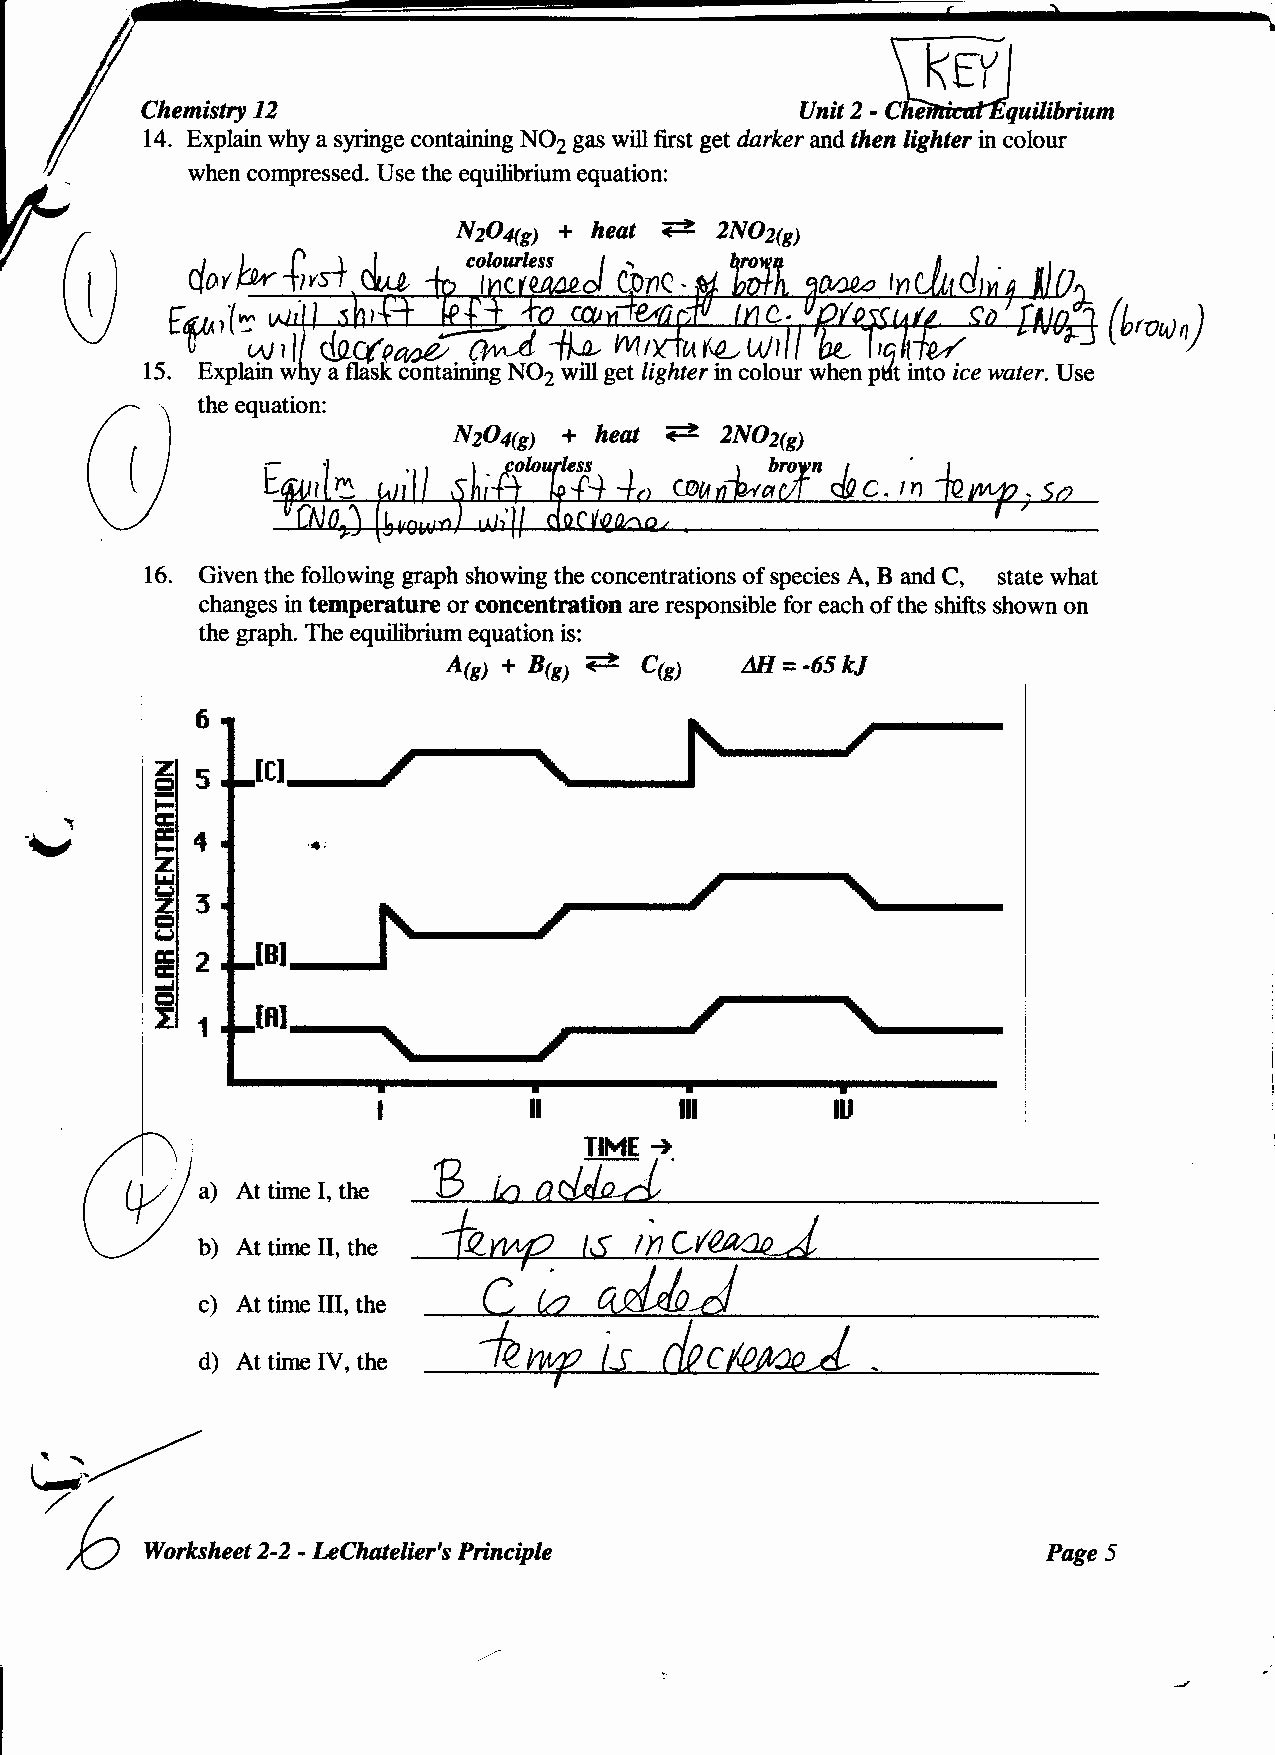 KEY
Chemistry 12 Unit 2 - Chemical Equilibrium
14. Explain why a syringe containing NO2 gas will first get darker and then lighter in colour
when compressed. Use the equilibrium equation:
N2O4(g) + heat ⇄ 2NO2(g)
colourless brown
(1) darker first due to increased conc. of both gases including NO2
Equilm will shift left to counteract inc. pressure so [NO2] (brown)
will decrease and the mixture will be lighter
15. Explain why a flask containing NO2 will get lighter in colour when put into ice water. Use
the equation:
N2O4(g) + heat ⇄ 2NO2(g)
colourless brown
(1) Equilm will shift left to counteract dec. in temp, so
[NO2] (brown) will decrease.
16. Given the following graph showing the concentrations of species A, B and C, state what
changes in temperature or concentration are responsible for each of the shifts shown on
the graph. The equilibrium equation is:
A(g) + B(g) ⇄ C(g) ΔH = -65 kJ
MOLAR CONCENTRATION
6
5 [C]
4
3
2 [B]
1 [A]
I II III IV
TIME →
(4) a) At time I, the B is added
b) At time II, the temp is increased
c) At time III, the C is added
d) At time IV, the temp is decreased.
6
Worksheet 2-2 - LeChatelier's Principle Page 5